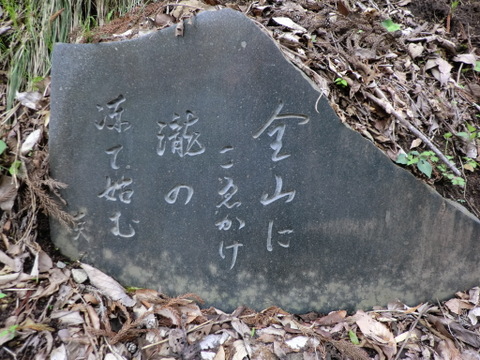 全山に
こゑかけ
瀧の
凍て始む